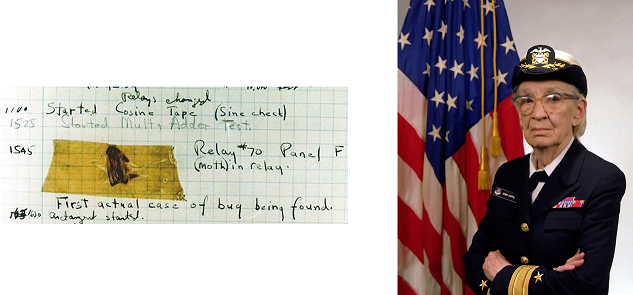 Relays changed
1100 Started Cosine Tape (Sine check)
1525 Started Mult+Adder Test.
1545 Relay #70 Panel F
(moth) in relay.
First actual case of bug being found.
antangent started.